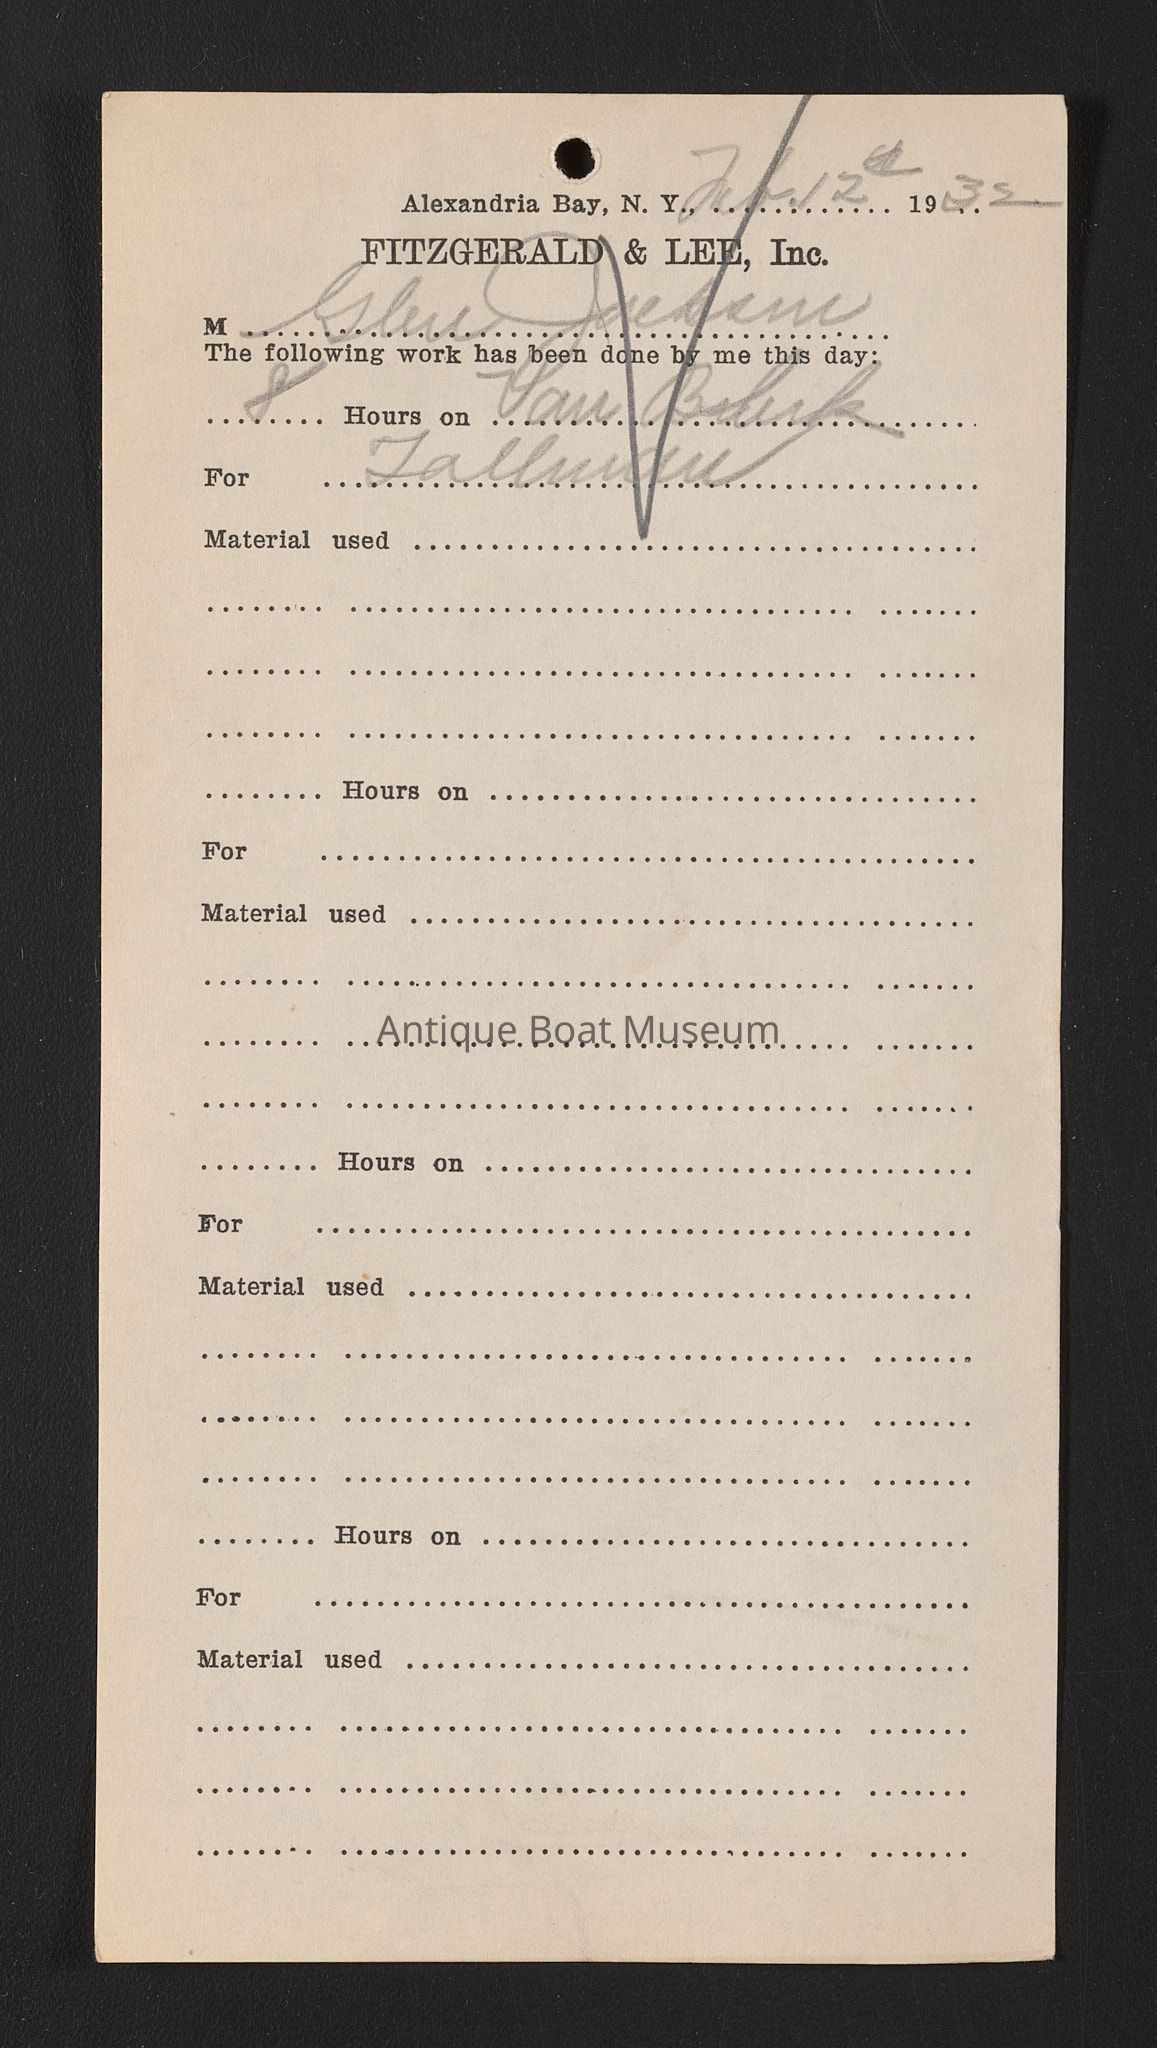 Alexandria Bay, N. Y., Feb. 12th 1932
FITZGERALD & LEE, Inc.
M Glen Jackson
The following work has been done by me this day:
8 Hours on Van
For Tallman
Material used
Hours on
For
Material used
Antique Boat Museum
Hours on
For
Material used
Hours on
For
Material used